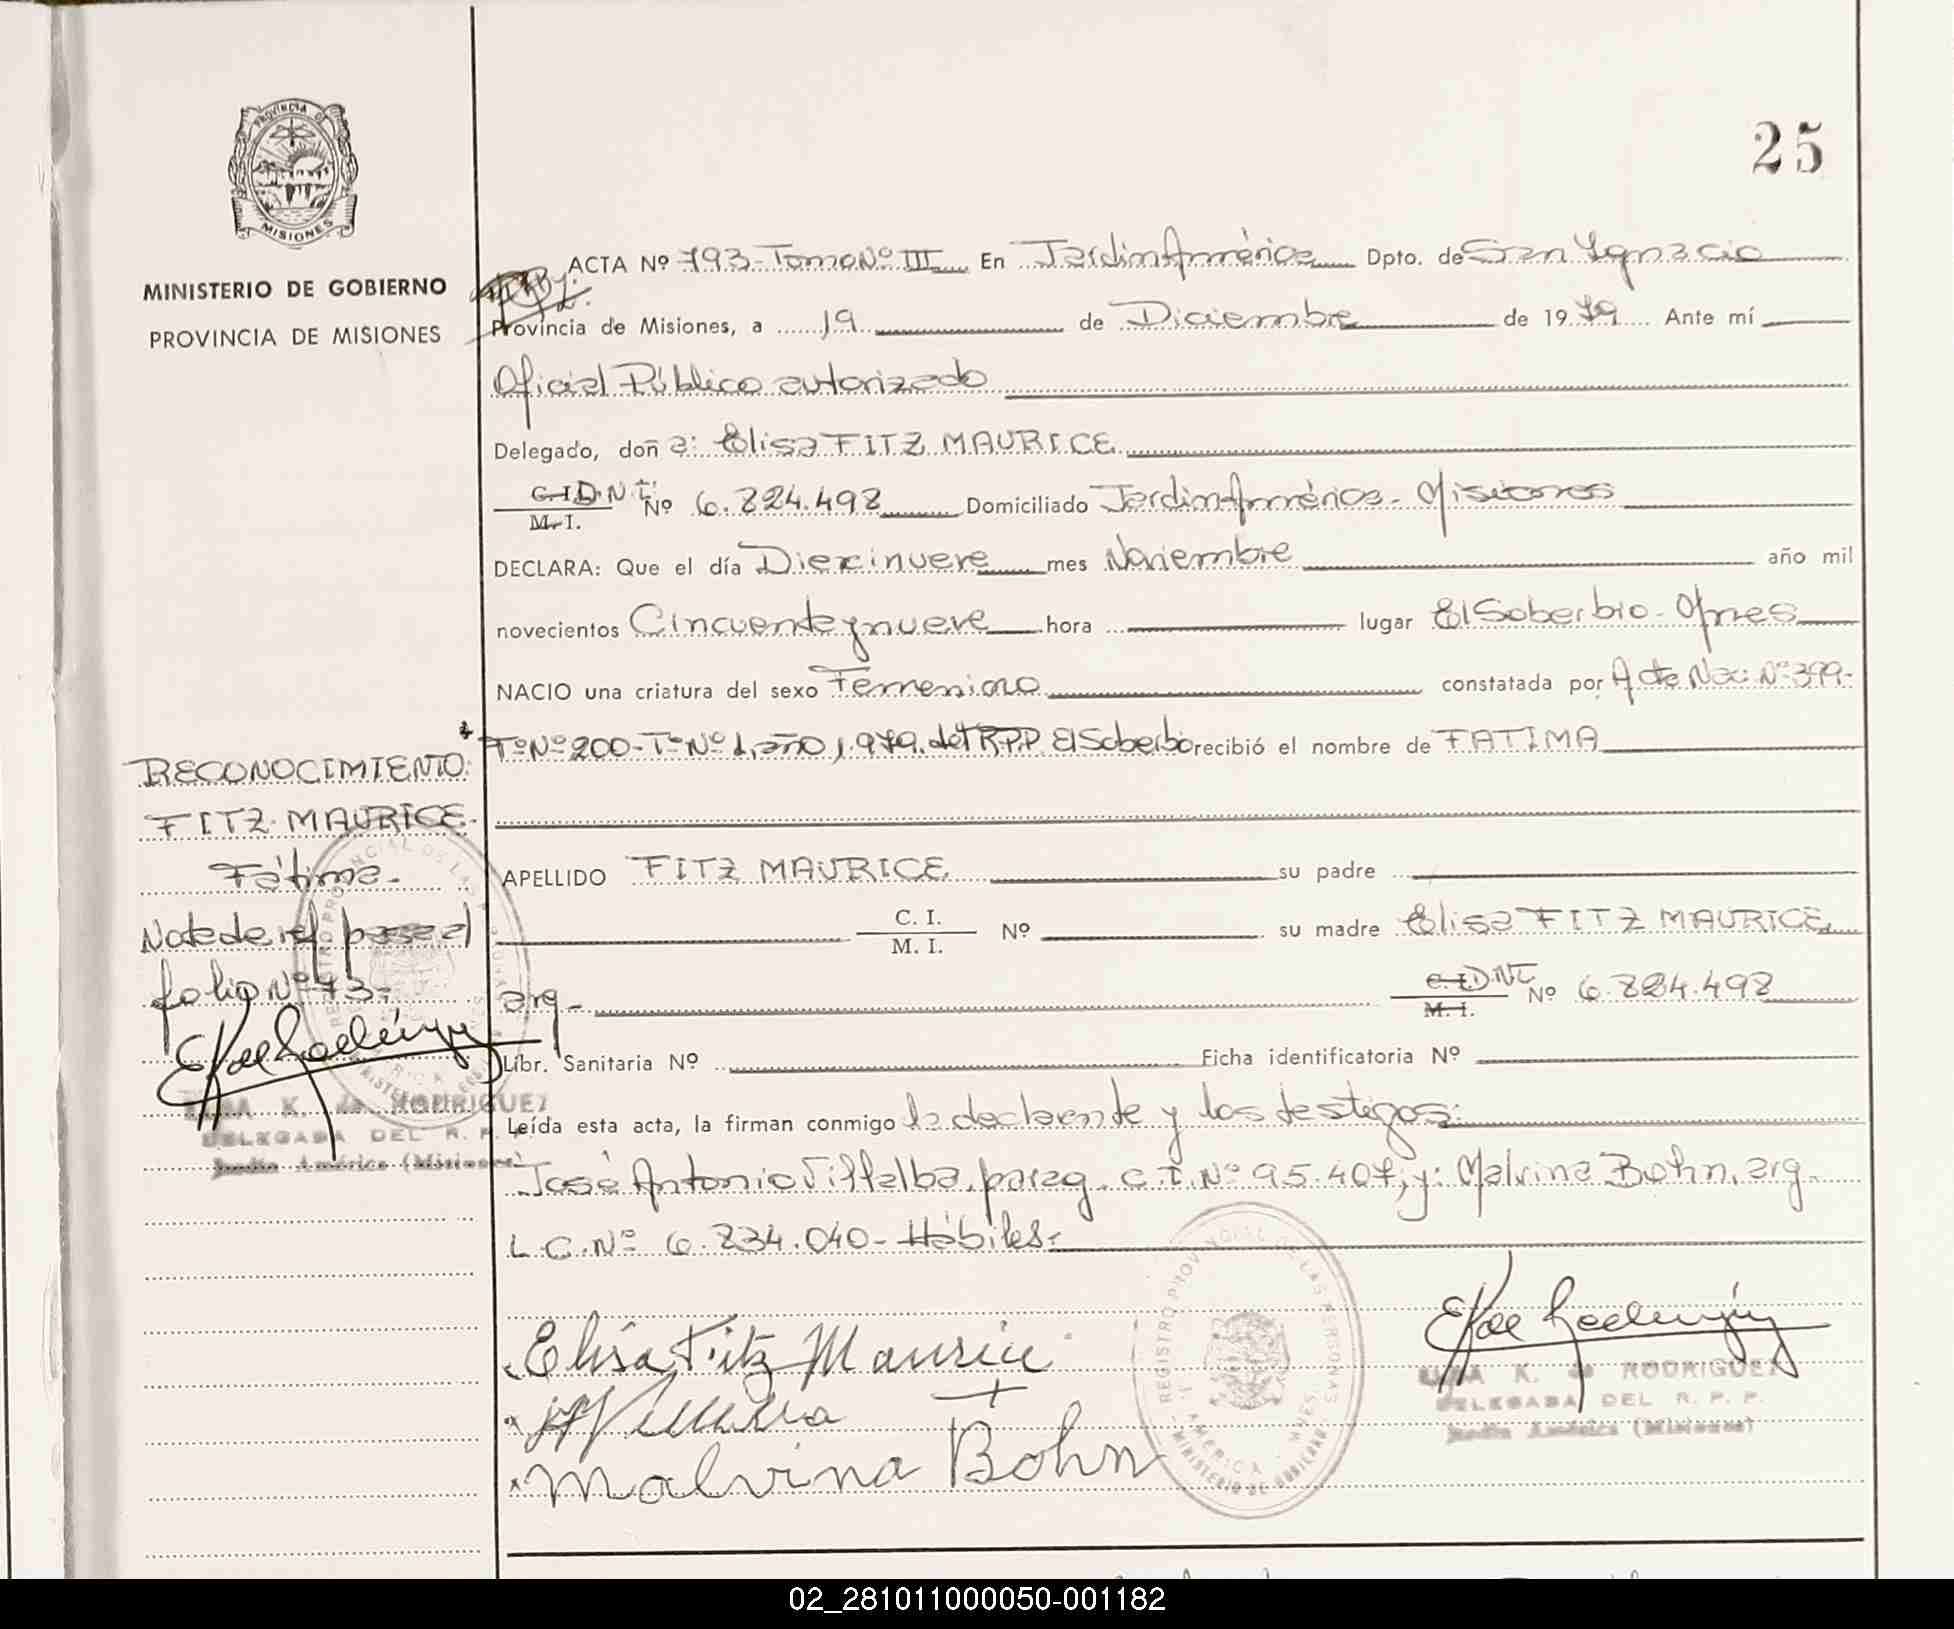 25
PROVINCIA DE
MISIONES
MINISTERIO DE GOBIERNO
PROVINCIA DE MISIONES
ACTA Nº 793-Tomo Nº III En Jardín América Dpto. de San Ignacio
Provincia de Misiones, a 19 de Diciembre de 1979 Ante mí
Oficial Público autorizado
Delegado, doña: Elisa FITZ MAURICE
C. I. D.N.I.
M. I. Nº 6.824.498 Domiciliado Jardín América - Misiones
DECLARA: Que el día Diecinueve mes Noviembre año mil
novecientos Cincuenta y nueve hora lugar El Soberbio - Mnes
NACIO una criatura del sexo Femenino constatada por Acta Nac. Nº 399-
Fº Nº 200-Tº Nº 1, año 1.979. del R.P.P. El Soberbio recibió el nombre de FATIMA
APELLIDO FITZ MAURICE su padre
C. I.
M. I. Nº su madre Elisa FITZ MAURICE
arg.- C. I. D.N.I.
M. I. Nº 6.824.498
Libr. Sanitaria Nº Ficha identificatoria Nº
Leída esta acta, la firman conmigo la declarante y los testigos:
José Antonio Villalba, parag. C.I. Nº 95.407; y: Malvina Bohn, arg.
L.C. Nº 6.834.040- Hábiles.-
RECONOCIMIENTO:
FITZ MAURICE
Fátima.-
Nota de ref. pasa al
folio Nº 73-
K. de RODRIGUEZ
DELEGADA DEL R. P. P.
Jardín América (Misiones)
Elisa Fitz Maurice
Malvina Bohn
REGISTRO PROVINCIAL DE LAS PERSONAS
J. AMERICA - MNES.
MINISTERIO DE GOBIERNO
K. de RODRIGUEZ
DELEGADA DEL R. P. P.
Jardín América (Misiones)
02_281011000050-001182